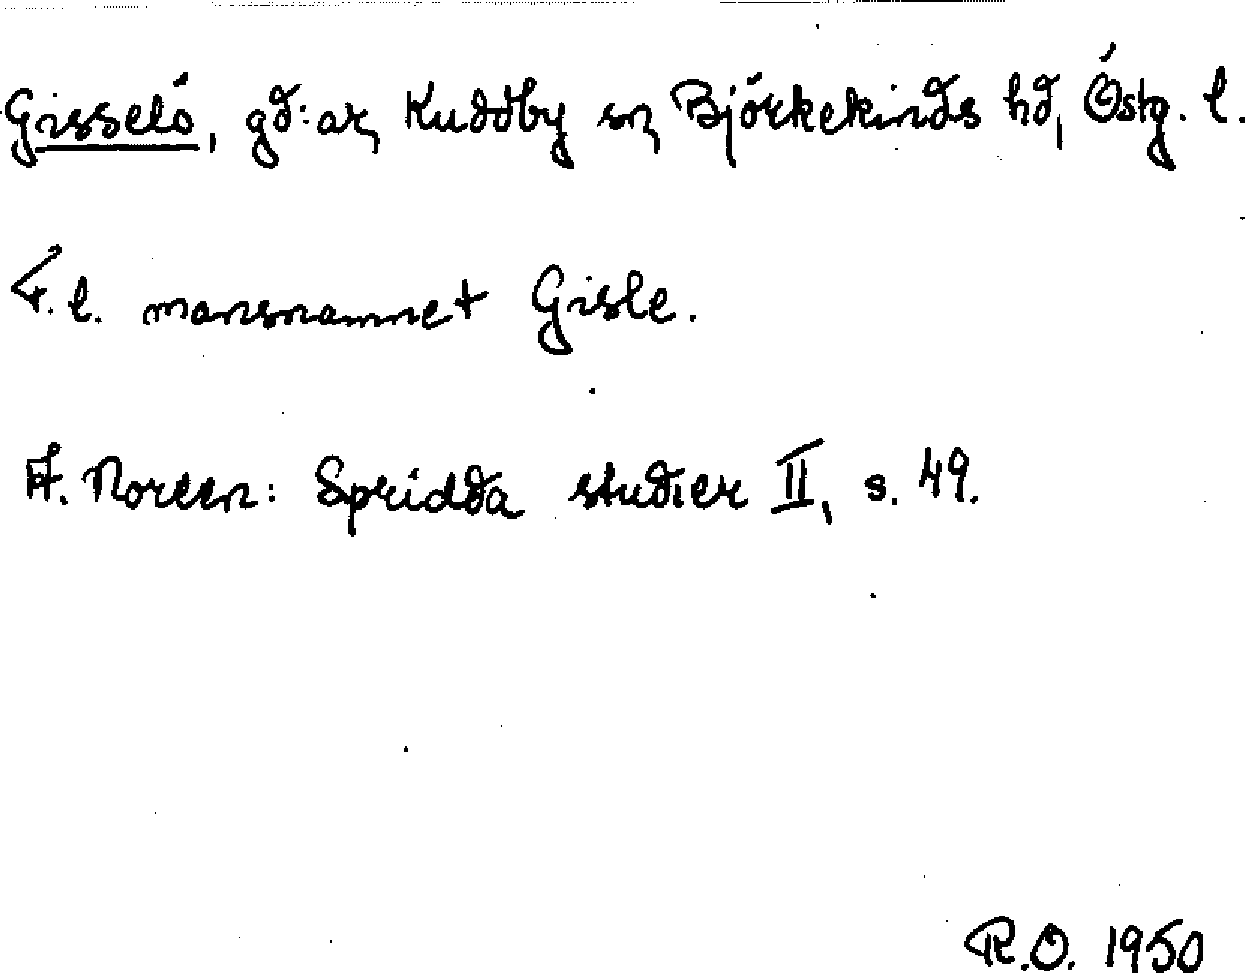 Gisselö, gd:ar, Kuddby sn, Björkekinds hd, Östg. l.
F. l. mansnamnet Gisle.
A. Noreen: Spridda studier II, s. 49.
R.O. 1950